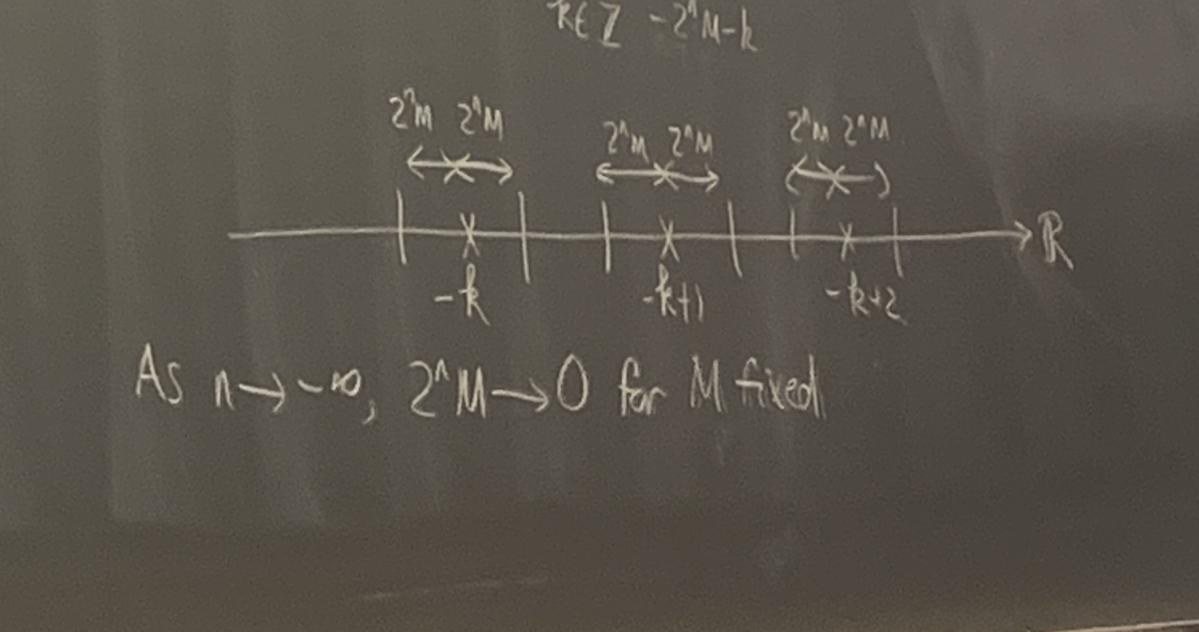 k∈Z -2ⁿM-k
2ⁿM 2ⁿM 2ⁿM 2ⁿM 2ⁿM 2ⁿM
ℝ
-k -k+1 -k+2
As n→-∞, 2ⁿM→0 for M fixed